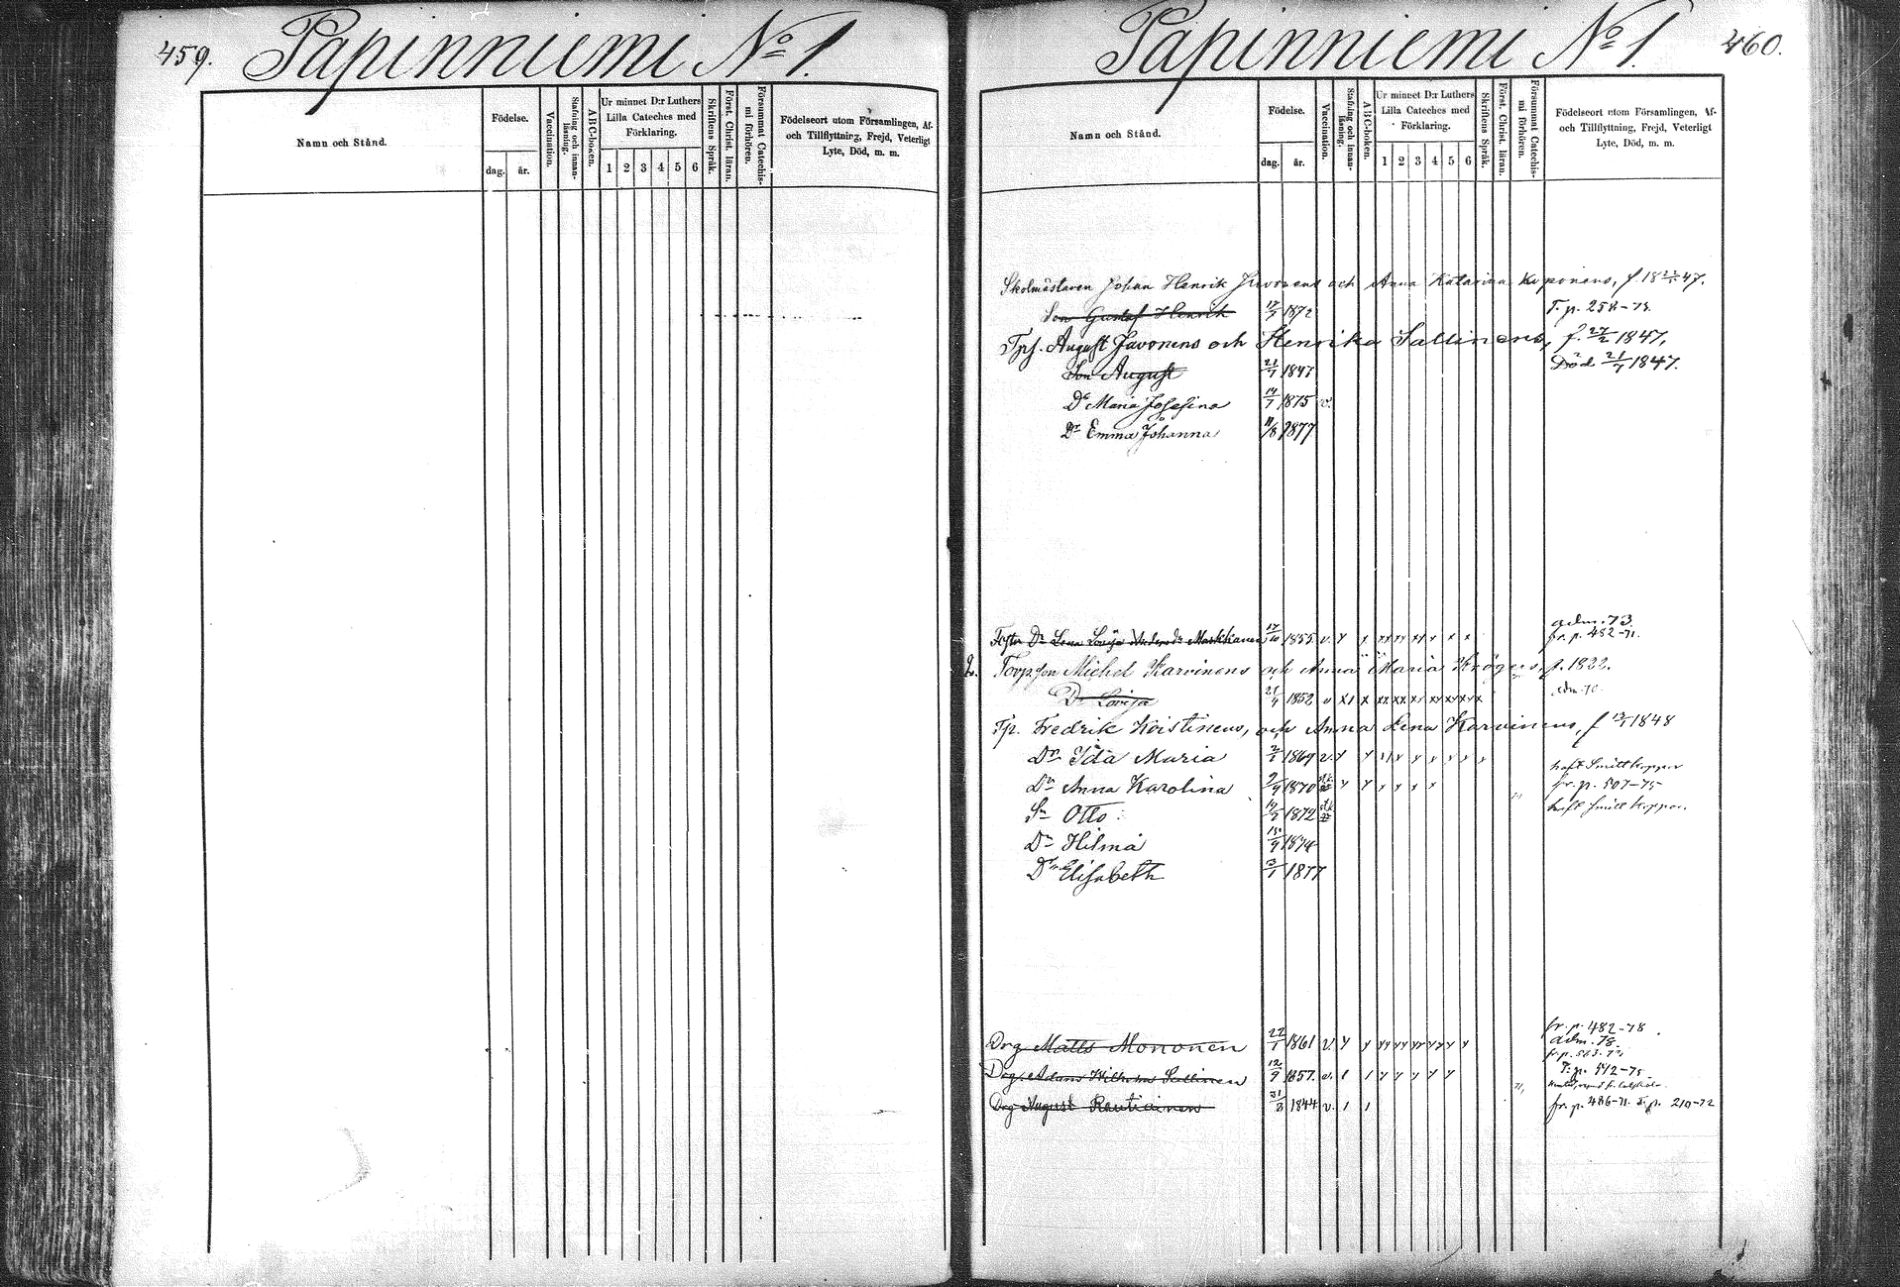 459.
Papinniemi No 1.
Namn och Stånd.
Födelse.
dag.
år.
Vaccination.
Stafning och innan-läsning.
ABC-boken.
Ur minnet D:r Luthers
Lilla Cateches med
Förklaring.
1 2 3 4 5 6
Skriftens Språk.
Först. Christ. läran.
Försummat Catechis-mi förhören.
Födelseort utom Församlingen, Af-
och Tillflyttning, Frejd, Veterligt
Lyte, Död, m. m.
Papinniemi No 1.
460.
Namn och Stånd.
Födelse.
dag.
år.
Vaccination.
Stafning och innan-läsning.
ABC-boken.
Ur minnet D:r Luthers
Lilla Cateches med
Förklaring.
1 2 3 4 5 6
Skriftens Språk.
Först. Christ. läran.
Försummat Catechis-mi förhören.
Födelseort utom Församlingen, Af-
och Tillflyttning, Frejd, Veterligt
Lyte, Död, m. m.
Skolmästaren Johan Henrik och Anna Katarina Koponens, f. 18 47.
Son Gustaf Henrik 17/7 1872 T. p. 258-73.
August Javonens och Henrika Sallinens, f. 27/2 1847.
Son August 21/7 1847 Död 21/7 1847.
Dr Maria Josefina 14/7 1875 v.
Dr Emma Johanna 11/8 1877
Dr Lena Lovisa Markkanen 17/10 1855 v. adm. 73.
fr. p. 482-71.
2. Torp. son Michel Karvinens och Anna Maria Krögers, f. 1822.
Dr Lovisa 21/4 1852 v
Tp. Fredrik Koistinens, och Anna Lena Karvinens, f 1848
Dr Ida Maria 1869 v. haft Smittkoppor
Dr Anna Karolina 2/9 1870 fr. p. 507-75
Sn Otto 14/5 1872 haft Smittkoppor.
Dr Hilma 15/9 1874
Dr Elisabeth 3/1 1877
fr. p. 482-78
Drg Matts Mononen 22/1 1861 v. adm. 78.
Drg. Adam Wilhelm Sallinen 12/9 1857. v. T. p. 542-75
Drg August Rautiainen 31/8 1844 v. fr. p. 486-71. T. p. 210-72